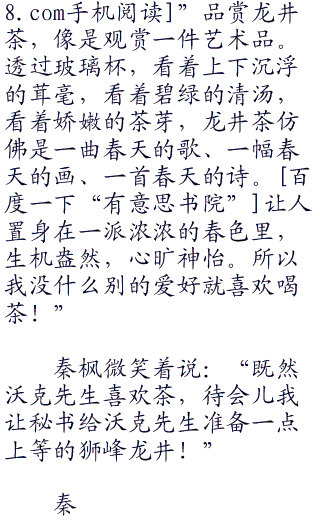 8.com手机阅读]”品赏龙井
茶，像是观赏一件艺术品。
透过玻璃杯，看着上下沉浮
的茸毫，看着碧绿的清汤，
看着娇嫩的茶芽，龙井茶仿
佛是一曲春天的歌、一幅春
天的画、一首春天的诗。[百
度一下“有意思书院”]让人
置身在一派浓浓的春色里，
生机盎然，心旷神怡。所以
我没什么别的爱好就喜欢喝
茶！”
秦枫微笑着说：“既然
沃克先生喜欢茶，待会儿我
让秘书给沃克先生准备一点
上等的狮峰龙井！”
秦